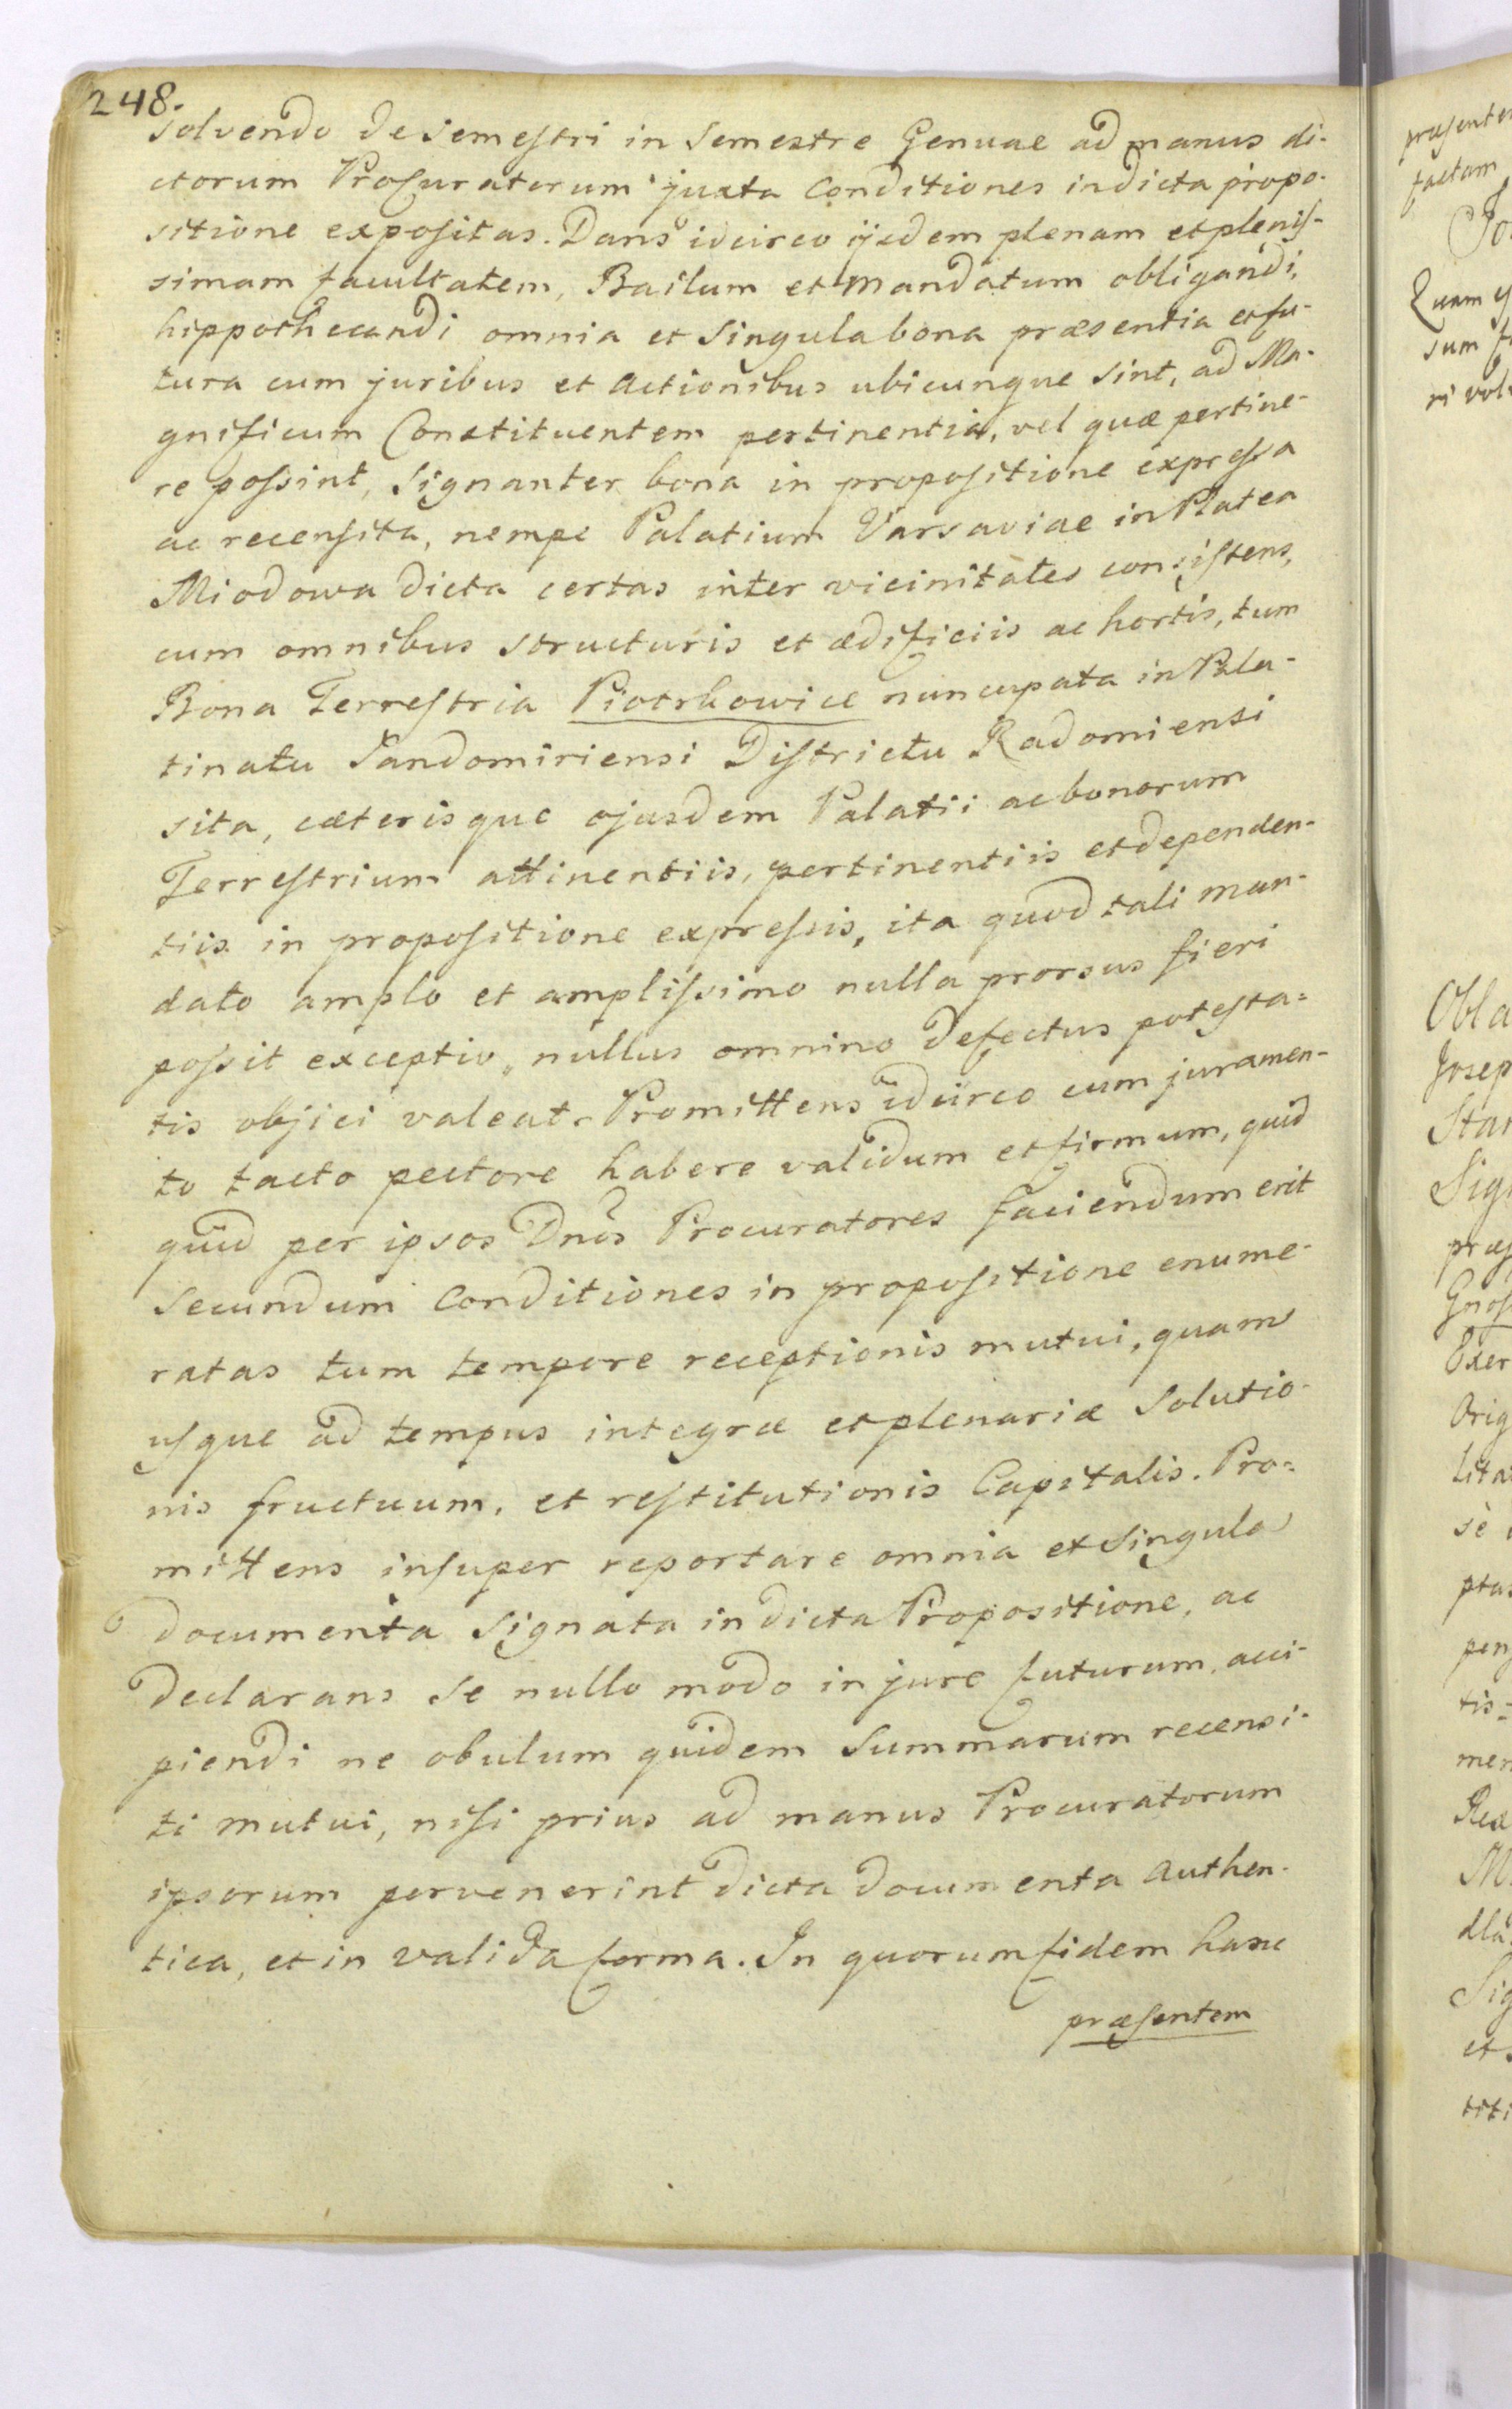 248.
solvendo de semestri in semestre Genuae ad manus di-
ctorum Procuratorum juxta Conditiones in dicta propo-
sitione expositas. Dans idcirco ijsdem plenam et plenis-
simam facultatem, Bailum et mandatum obligandi,
hippothecandi omnia et singula bona præsentia et fu-
tura cum juribus et actionibus ubicunque sint, ad Ma-
gnificum Constituentem pertinentia, vel quæ pertine-
re possint, signanter bona in propositione expressa
ac recensita, nempe Palatium Varsaviae in Platea
Miodowa dicta certas inter vicinitates consistens,
cum omnibus structuris et ædificiis ac hortis, tum
Bona Terrestria Piotrkowice nuncupata in Pala-
tinatu Sandomiriensi Districtu Radomiensi
sita, cæterisque ejusdem Palatii ac bonorum
Terrestrium attinentiis, pertinentiis et dependen-
tiis in propositione expressis, ita quod tali man-
dato amplo et amplissimo nulla prorsus fieri
possit exceptio, nullus omnino defectus potesta=
tis objici valeat. Promittens idcirco cum juramen-
to tacto pectore habere validum et firmum, quid
quid per ipsos Dnos Procuratores faciendum erit
secundum Conditiones in propositione enume-
ratas tum tempore receptionis mutui, quam
usque ad tempus integræ et plenariæ solutio-
nis fructuum, et restitutionis Capitalis. Pro=
mittens insuper reportare omnia et singula
documenta signata in dicta Propositione, ac
declarans se nullo modo in jure futurum, acci-
piendi ne obulum quidem summarum recensi-
ti mutui, nisi prius ad manus Procuratorum
ipsorum pervenerint dicta documenta authen-
tica, et in valida forma. In quorum fidem hanc
præsentem
præsentem
factam
Obla
Josep
Star
Sig
Orig